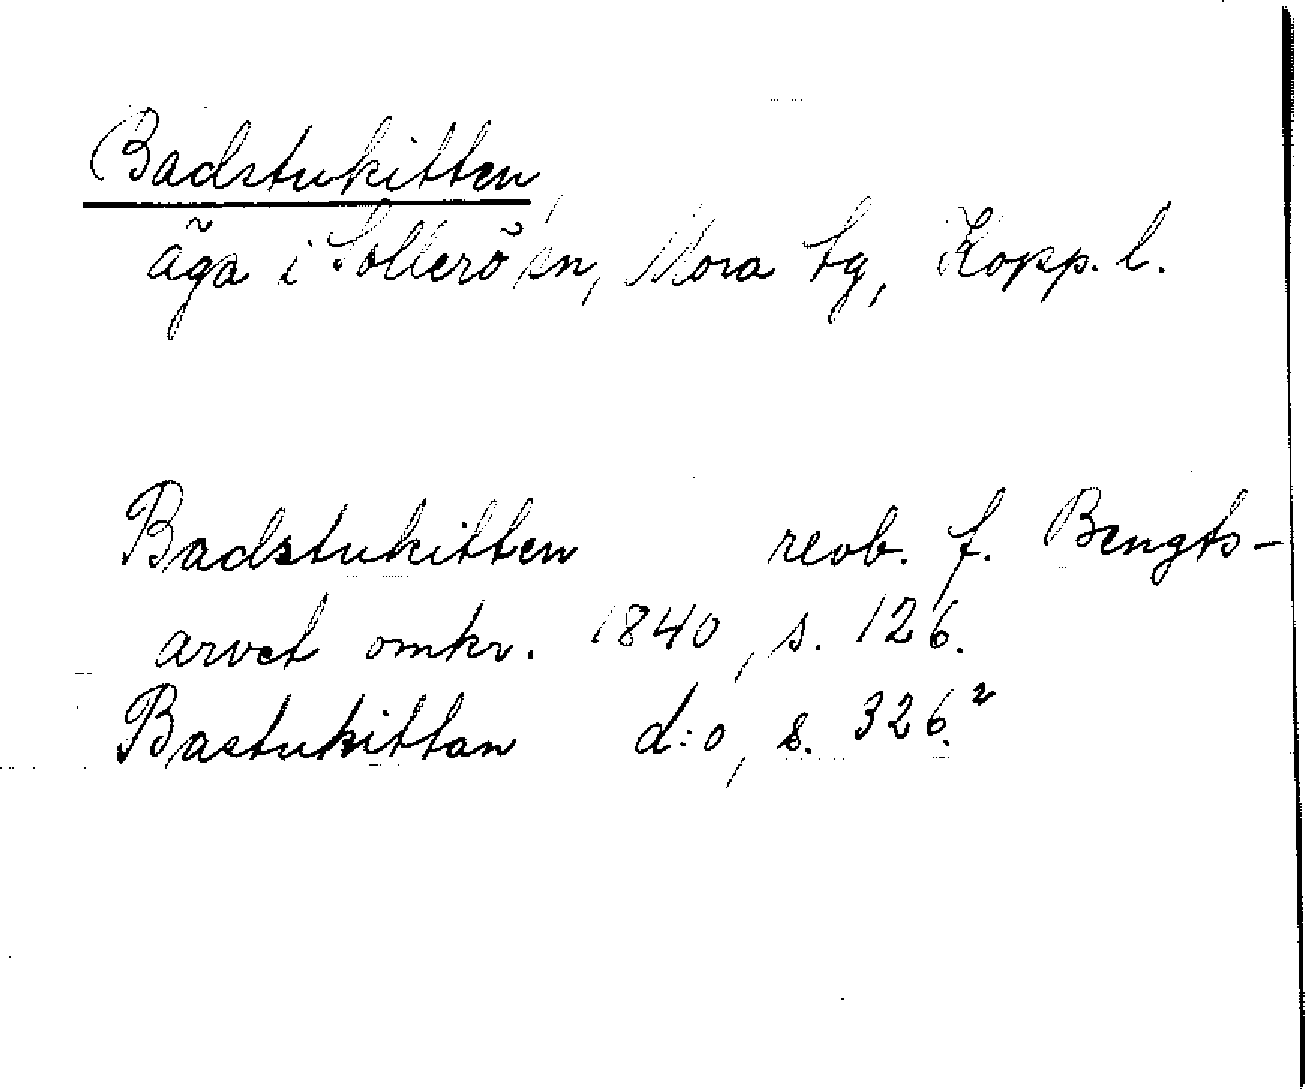 Badstukitten
äga i Sollerö sn, Mora tg, Kopp. l.
Badstukitten reob. f. Bengts-
arvet omkr. 1840, s. 126.
Bastukittan d:o, s. 326.²